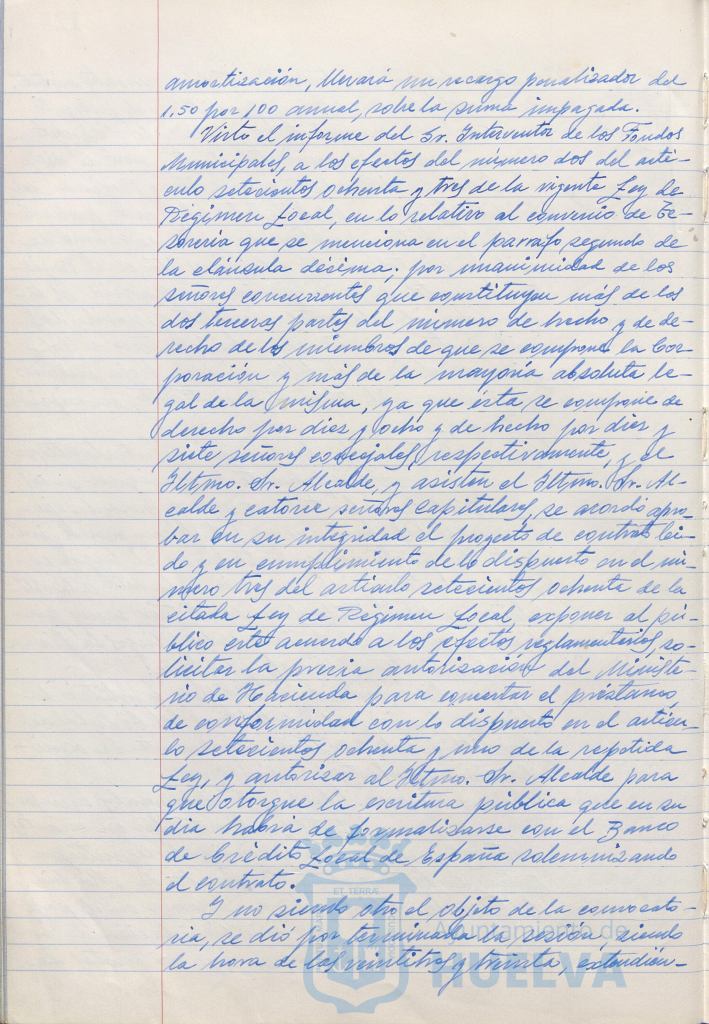 amortización, llevará un recargo penalizador del
1,50 por 100 anual, sobre la suma impagada.
Visto el informe del Sr. Interventor de los Fondos
Municipales, a los efectos del número dos del artí-
culo setecientos ochenta y tres de la vigente Ley de
Régimen Local, en lo relativo al convenio de Te-
sorería que se menciona en el párrafo segundo de
la cláusula décima; por unanimidad de los
señores concurrentes que constituyen más de las
dos terceras partes del número de hecho y de de-
recho de los miembros de que se compone la Cor-
poración y más de la mayoría absoluta le-
gal de la misma, ya que ésta se compone de
derecho por diez y ocho y de hecho por diez y
siete señores concejales, respectivamente, y el
Iltmo. Sr. Alcalde, y asisten el Iltmo. Sr. Al-
calde y catorce señores Capitulares, se acordó apro-
bar en su integridad el proyecto de contrato leí-
do y en cumplimiento de lo dispuesto en el nú-
mero tres del artículo setecientos ochenta de la
citada Ley de Régimen Local, exponer al pú-
blico este acuerdo a los efectos reglamentarios, so-
licitar la previa autorización del Ministe-
rio de Hacienda para concertar el préstamo,
de conformidad con lo dispuesto en el artícu-
lo setecientos ochenta y uno de la repetida
Ley, y autorizar al Iltmo. Sr. Alcalde para
que otorgue la escritura pública que en su
día habrá de formalizarse con el Banco
de Crédito Local de España solemnizando
el contrato.
Y no siendo otro el objeto de la convocato-
ria, se dió por terminada la sesión, siendo
la hora de las veintitres y treinta, extendién-
ET TERRÆ
Ayuntamiento de
HUELVA